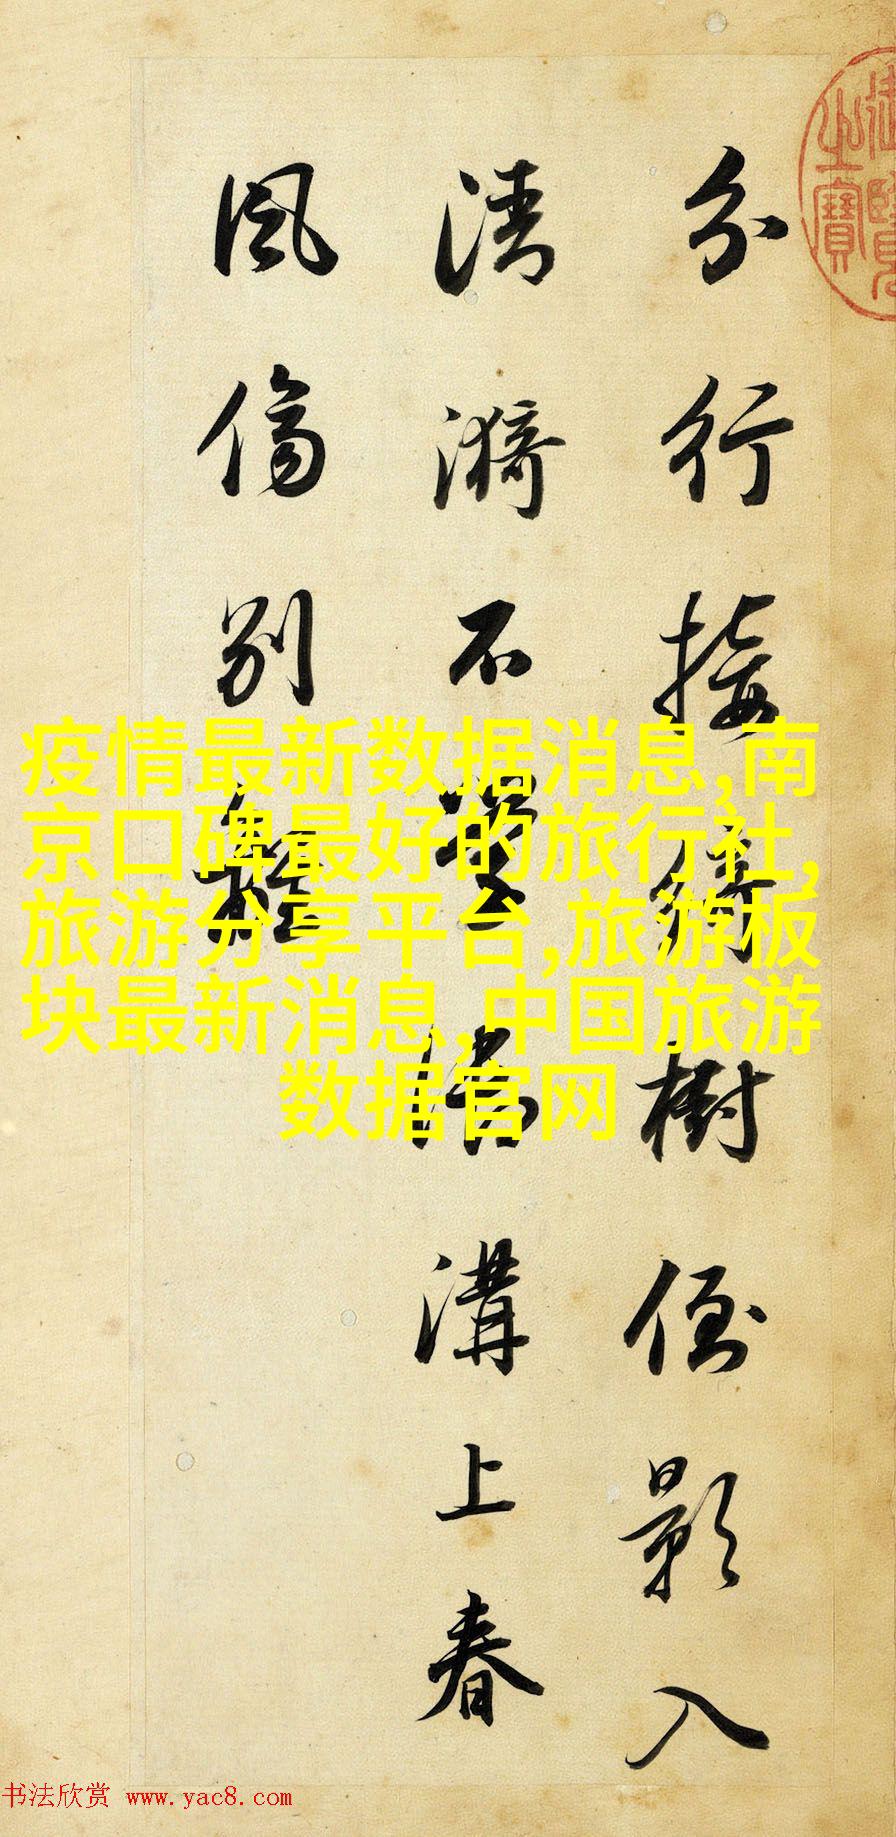 御覽
之寶
分行接綺樹倒影入
清漪不學御溝上春
風傷別離
疫情最新数据消息,南
京口碑最好的旅行社,
旅游分享平台,旅游板
块最新消息,中国旅游
数据官网
书法欣赏 www.yac8.com